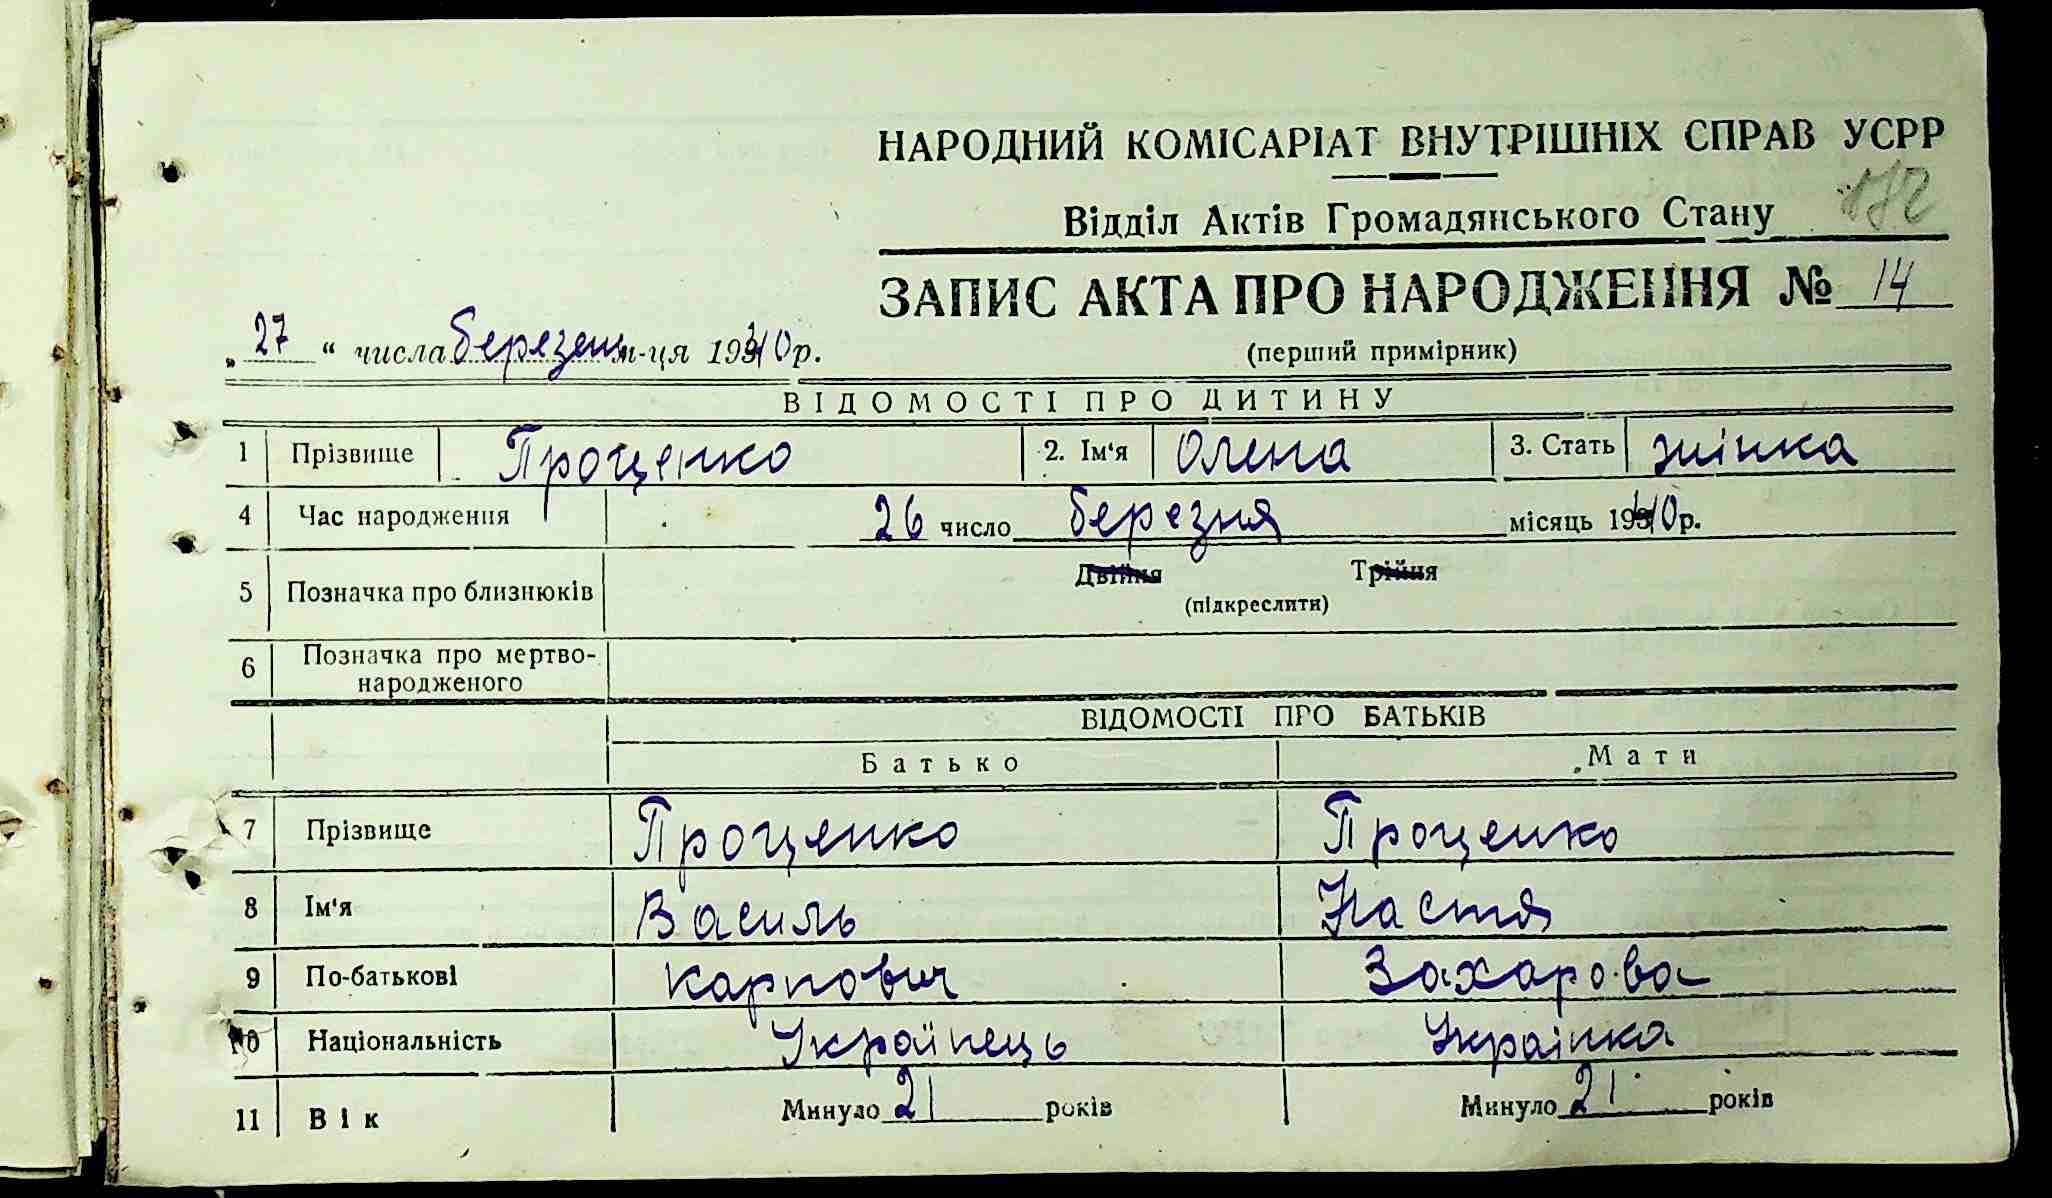 НАРОДНИЙ КОМІСАРІАТ ВНУТРІШНІХ СПРАВ УСРР
Відділ Актів Громадянського Стану
ЗАПИС АКТА ПРО НАРОДЖЕННЯ № 14
„27“ числа березень м-ця 1940 р.
(перший примірник)
ВІДОМОСТІ ПРО ДИТИНУ
1 Прізвище Проценко 2. Ім'я Олена 3. Стать жінка
4 Час народження 26 число березня місяць 1940 р.
5 Позначка про близнюків Двійня Трійня
(підкреслити)
6 Позначка про мертво-
народженого
ВІДОМОСТІ ПРО БАТЬКІВ
Батько Мати
7 Прізвище Проценко Проценко
8 Ім'я Василь Настя
9 По-батькові Карпович Захарова
10 Національність Українець Українка
11 Вік Минуло 21 років Минуло 21 років